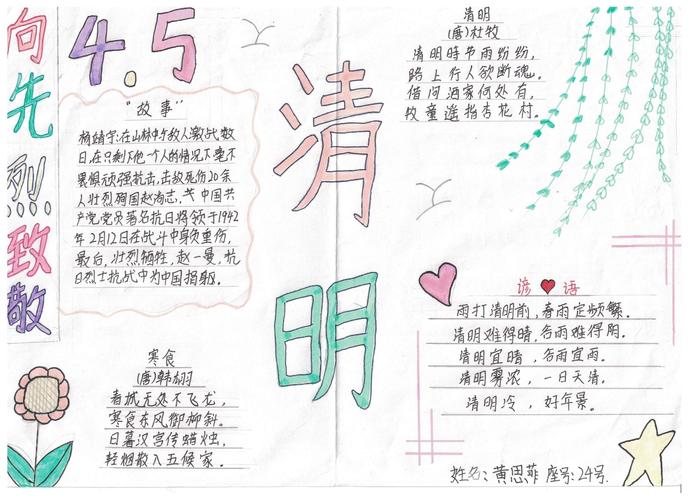 向先烈致敬
4.5
清明
“故事”
杨靖宇:在山林中与敌人激战数
日,在只剩下他一个人的情况下毫不
畏惧顽强抗击,击敌死伤20余
人壮烈殉国赵尚志,中国共
产党党员著名抗日将领于1942
年2月12日在战斗中身负重伤,
最后,壮烈牺牲,赵一曼,抗
日烈士抗战中为中国捐躯。
寒食
(唐)韩翃
春城无处不飞龙,
寒食东风御柳斜。
日暮汉宫传蜡烛,
轻烟散入五候家.
清明
(唐)杜牧
清明时节雨纷纷,
路上行人欲断魂。
借问酒家何处有,
牧童遥指杏花村.
谚语
雨打清明前,春雨定频繁.
清明难得晴,谷雨难得阴.
清明宜晴,谷雨宜雨。
清明雾浓,一日天清.
清明冷,好年景。
姓名:黄思菲 座号:24号.